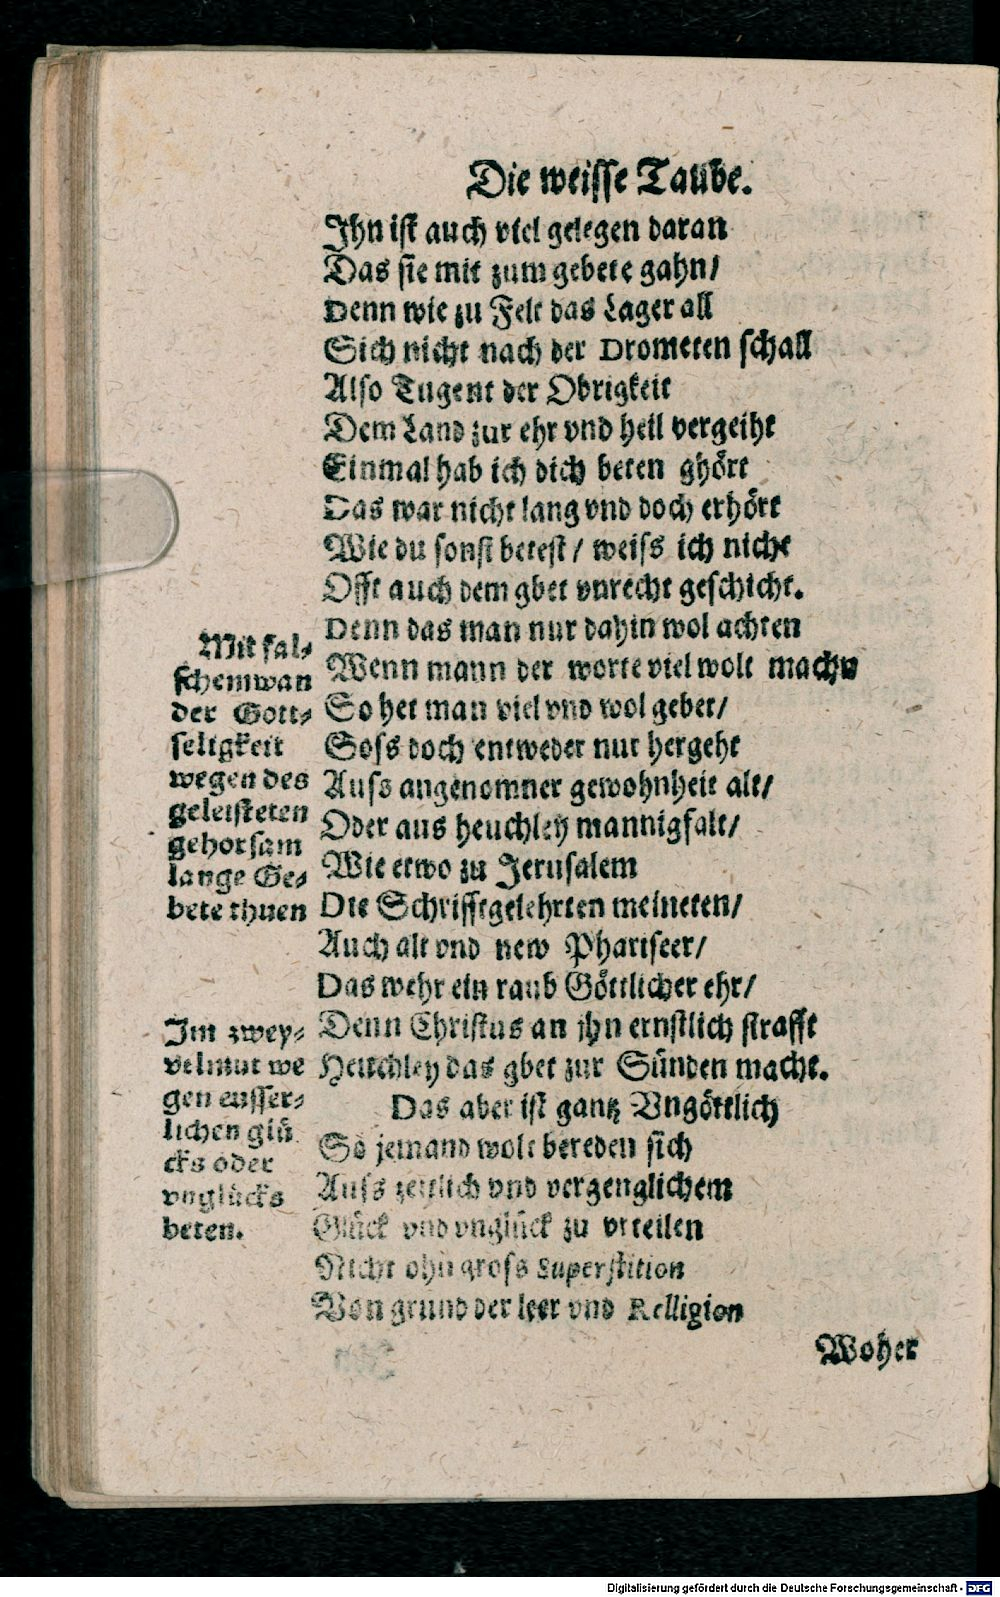 Die weisse Taube.
Ihn ist auch viel gelegen daran
Das sie mit zum gebete gahn/
Denn wie zu Felt das Lager all
Sich nicht nach der Drometen schall
Also Tugent der Obrigkeit
Dem Land zur ehr vnd heil vergeiht
Einmal hab ich dich beten ghört
Das war nicht lang vnd doch erhört
Wie du sonst betest/ weiss ich nicht
Offt auch dem gbet vnrecht geschicht.
Denn das man nur dahin wol achten
Wenn mann der worte viel wolt machn
So het man viel vnd wol gebet/
Soss doch entweder nur hergeht
Auss angenomner gewohnheit alt/
Oder aus heuchley mannigfalt/
Wie etwo zu Jerusalem
Die Schrifftgelehrten meineten/
Auch alt vnd new Phariseer/
Das wehr ein raub Göttlicher ehr/
Denn Christus an ihn ernstlich strafft
Heuchley das gbet zur Sünden macht.
Das aber ist gantz Vngöttlich
So jemand wolt bereden sich
Auss zeitlich vnd vergenglichem
Glück vnd vnglück zu vrteilen
Nicht ohn gross Superstition
Von grund der leer vnd Relligion
Woher
Mit fal-
schem wan
der Gott-
seligkeit
wegen des
geleisteten
gehorsam
lange Ge-
bete thuen
Im zwey-
velmut we
gen eusser-
lichen glü
cks oder
vnglücks
beten.
Digitalisierung gefördert durch die Deutsche Forschungsgemeinschaft - DFG